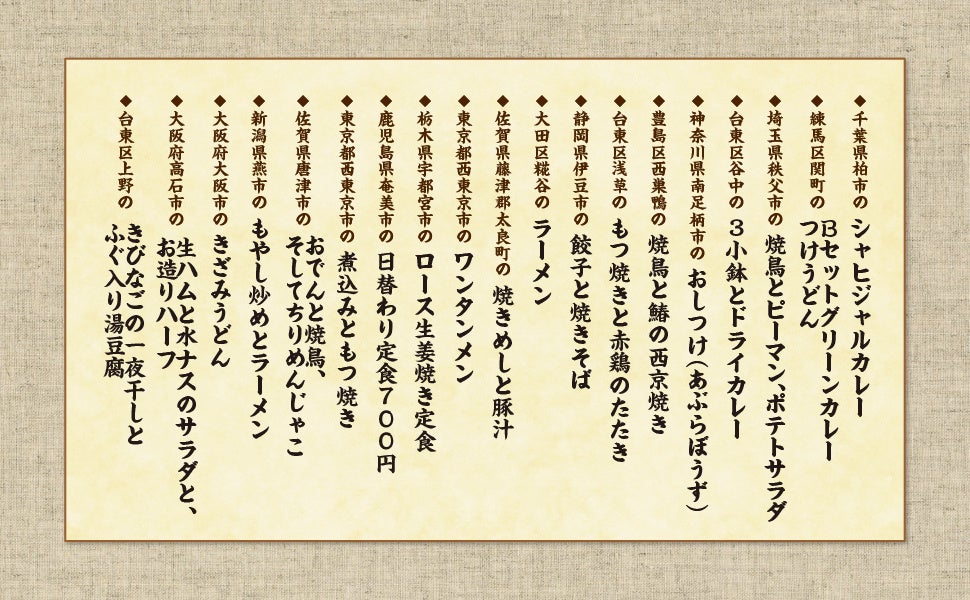 ◆千葉県柏市の シャヒジャルカレー
◆練馬区関町の Bセットグリーンカレー
つけうどん
◆埼玉県秩父市の 焼鳥とピーマン、ポテトサラダ
◆台東区谷中の 3小鉢とドライカレー
◆神奈川県南足柄市の おしつけ(あぶらぼうず)
◆豊島区西巣鴨の 焼鳥と鰆の西京焼き
◆台東区浅草の もつ焼きと赤鶏のたたき
◆静岡県伊豆市の 餃子と焼きそば
◆大田区糀谷の ラーメン
◆佐賀県藤津郡太良町の 焼きめしと豚汁
◆東京都西東京市の ワンタンメン
◆栃木県宇都宮市の ロース生姜焼き定食
◆鹿児島県奄美市の 日替わり定食700円
◆東京都西東京市の 煮込みともつ焼き
◆佐賀県唐津市の おでんと焼鳥、
そしてちりめんじゃこ
◆新潟県燕市の もやし炒めとラーメン
◆大阪府大阪市の きざみうどん
◆大阪府高石市の 生ハムと水ナスのサラダと、
お造りハーフ
◆台東区上野の きびなごの一夜干しと
ふぐ入り湯豆腐